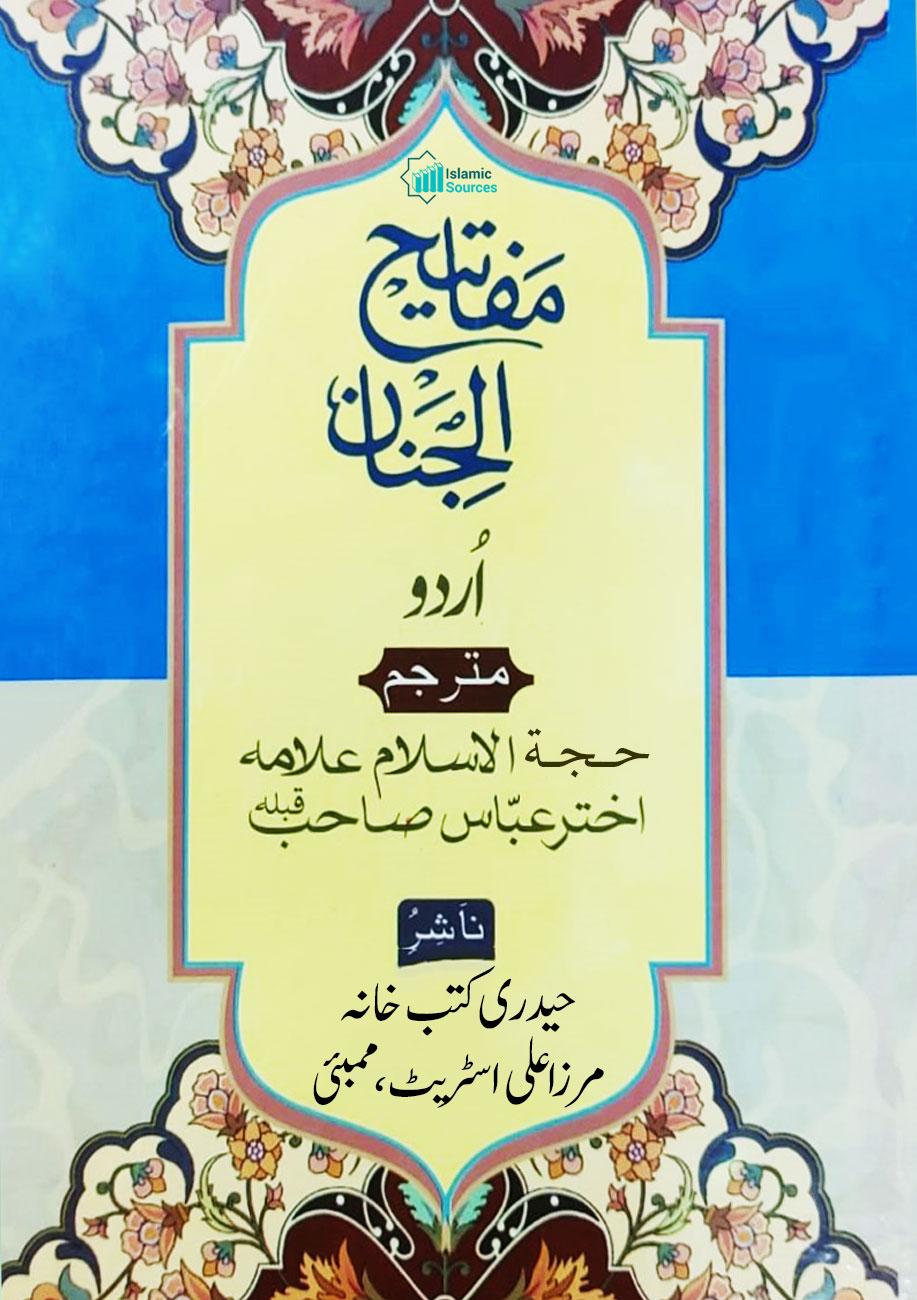 Islamic
Sources
مفَاتیح
الجِنَان
اُردو
مترجم
حجة الاسلام علامه
اختر عبّاس صاحب قبله
ناَشِرُ
حیدری کتب خانہ
مرزا علی اسٹریٹ، ممبئی